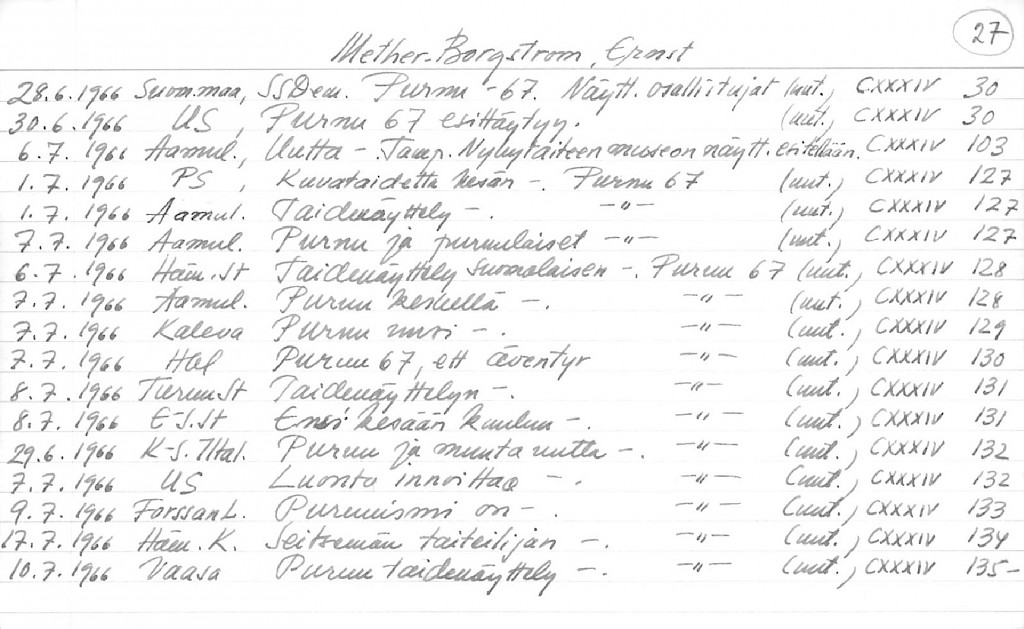 27
Mether-Borgström, Ernst
28.6.1966 Suom.maa, SSDem. Purnu -67. Näytt. osallistujat (mt., CXXXIV 30
30.6.1966 US, Purnu 67 esittäytyy. (mt., CXXXIV 30
6.7.1966 Aamul., Uutta -. Tamp. Nykytaiteen museon näytt. esitellään. CXXXIV 103
1.7.1966 PS, Kuvataidetta kesän -. Purnu 67 (mt., CXXXIV 127
1.7.1966 Aamul. Taidenäyttely -. -"- (mt., CXXXIV 127
7.7.1966 Aamul. Purnu ja purnulaiset -"- (mt., CXXXIV 127
6.7.1966 Häm.St Taidenäyttely Suomalaisen -. Purnu 67 (mt., CXXXIV 128
7.7.1966 Aamul. Purnu keskellä -. -"- (mt., CXXXIV 128
7.7.1966 Kaleva Purnu uusi -. -"- (mt., CXXXIV 129
7.7.1966 Hbl Purnu 67, ett äventyr -"- (mt., CXXXIV 130
8.7.1966 Turun St Taidenäyttelyn -. -"- (mt., CXXXIV 131
8.7.1966 E-S.St Ensi kesään kuuluu -. -"- (mt., CXXXIV 131
29.6.1966 K-S. Iltal. Purnu ja muuta uutta -. -"- (mt., CXXXIV 132
7.7.1966 US Luonto innoittaa -. -"- (mt., CXXXIV 132
9.7.1966 Forssan L. Purnuismi on -. -"- (mt., CXXXIV 133
17.7.1966 Häm. K. Seitsemän taiteilijan -. -"- (mt., CXXXIV 134
10.7.1966 Vaasa Purnun taidenäyttely -. -"- (mt., CXXXIV 135-